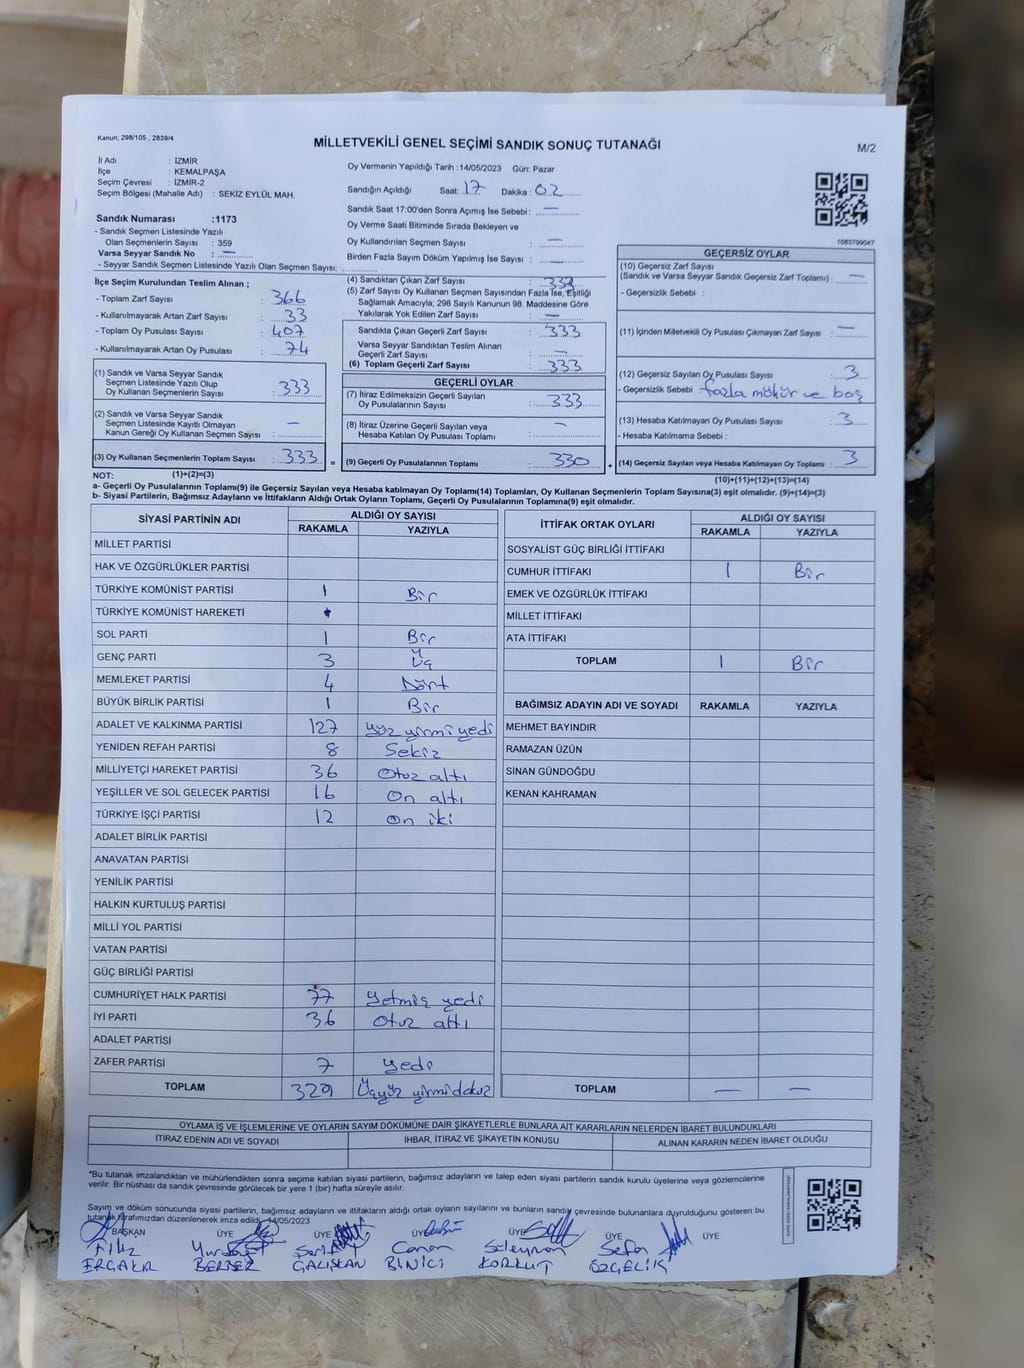 Kanun: 298/105 , 2839/4
MİLLETVEKİLİ GENEL SEÇİMİ SANDIK SONUÇ TUTANAĞI
M/2
İl Adı : İZMİR
İlçe : KEMALPAŞA
Seçim Çevresi : İZMİR-2
Seçim Bölgesi (Mahalle Adı) : SEKİZ EYLÜL MAH.
Oy Vermenin Yapıldığı Tarih : 14/05/2023 Gün: Pazar
Sandığın Açıldığı Saat: 17 Dakika : 02
Sandık Saat 17:00'den Sonra Açımış İse Sebebi : —
Oy Verme Saati Bitiminde Sırada Bekleyen ve
Oy Kullandırılan Seçmen Sayısı : —
Birden Fazla Sayım Döküm Yapılmış İse Sayısı : —
1083799047
Sandık Numarası :1173
- Sandık Seçmen Listesinde Yazılı
Olan Seçmenlerin Sayısı : 359
Varsa Seyyar Sandık No : —
- Seyyar Sandık Seçmen Listesinde Yazılı Olan Seçmen Sayısı:
İlçe Seçim Kurulundan Teslim Alınan ;
- Toplam Zarf Sayısı : 366
- Kullanılmayarak Artan Zarf Sayısı : 33
- Toplam Oy Pusulası Sayısı : 407
- Kullanılmayarak Artan Oy Pusulası : 74
(1) Sandık ve Varsa Seyyar Sandık
Seçmen Listesinde Yazılı Olup
Oy Kullanan Seçmenlerin Sayısı : 333
(2) Sandık ve Varsa Seyyar Sandık
Seçmen Listesinde Kayıtlı Olmayan
Kanun Gereği Oy Kullanan Seçmen Sayısı : —
(3) Oy Kullanan Seçmenlerin Toplam Sayısı : 333 =
(4) Sandıktan Çıkan Zarf Sayısı : 333
(5) Zarf Sayısı Oy Kullanan Seçmen Sayısından Fazla İse, Eşitliği
Sağlamak Amacıyla; 298 Sayılı Kanunun 98. Maddesine Göre
Yakılarak Yok Edilen Zarf Sayısı : —
Sandıkta Çıkan Geçerli Zarf Sayısı : 333
Varsa Seyyar Sandıktan Teslim Alınan
Geçerli Zarf Sayısı : —
(6) Toplam Geçerli Zarf Sayısı : 333
GEÇERLİ OYLAR
(7) İtiraz Edilmeksizin Geçerli Sayılan
Oy Pusulalarının Sayısı : 333
(8) İtiraz Üzerine Geçerli Sayılan veya
Hesaba Katılan Oy Pusulası Toplamı : —
(9) Geçerli Oy Pusulalarının Toplamı : 330 +
GEÇERSİZ OYLAR
(10) Geçersiz Zarf Sayısı
(Sandık ve Varsa Seyyar Sandık Geçersiz Zarf Toplamı) : —
- Geçersizlik Sebebi :
(11) İçinden Milletvekili Oy Pusulası Çıkmayan Zarf Sayısı : —
(12) Geçersiz Sayılan Oy Pusulası Sayısı : 3
- Geçersizlik Sebebi : fazla mühür ve boş
(13) Hesaba Katılmayan Oy Pusulası Sayısı : 3
- Hesaba Katılmama Sebebi :
(14) Geçersiz Sayılan veya Hesaba Katılmayan Oy Toplamı : 3
NOT: (1)+(2)=(3) (10)+(11)+(12)+(13)=(14)
a- Geçerli Oy Pusulalarının Toplamı(9) ile Geçersiz Sayılan veya Hesaba katılmayan Oy Toplamı(14) Toplamları, Oy Kullanan Seçmenlerin Toplam Sayısına(3) eşit olmalıdır. (9)+(14)=(3)
b- Siyasi Partilerin, Bağımsız Adayların ve İttifakların Aldığı Ortak Oyların Toplamı, Geçerli Oy Pusulalarının Toplamına(9) eşit olmalıdır.
SİYASİ PARTİNİN ADI ALDIĞI OY SAYISI
RAKAMLA YAZIYLA
MİLLET PARTİSİ
HAK VE ÖZGÜRLÜKLER PARTİSİ
TÜRKİYE KOMÜNİST PARTİSİ 1 Bir
TÜRKİYE KOMÜNİST HAREKETİ
SOL PARTİ 1 Bir
GENÇ PARTİ 3 Üç
MEMLEKET PARTİSİ 4 Dört
BÜYÜK BİRLİK PARTİSİ 1 Bir
ADALET VE KALKINMA PARTİSİ 127 yüz yirmi yedi
YENİDEN REFAH PARTİSİ 8 Sekiz
MİLLİYETÇİ HAREKET PARTİSİ 36 Otuz altı
YEŞİLLER VE SOL GELECEK PARTİSİ 16 On altı
TÜRKİYE İŞÇİ PARTİSİ 12 On iki
ADALET BİRLİK PARTİSİ
ANAVATAN PARTİSİ
YENİLİK PARTİSİ
HALKIN KURTULUŞ PARTİSİ
MİLLİ YOL PARTİSİ
VATAN PARTİSİ
GÜÇ BİRLİĞİ PARTİSİ
CUMHURİYET HALK PARTİSİ 77 yetmiş yedi
İYİ PARTİ 36 Otuz altı
ADALET PARTİSİ
ZAFER PARTİSİ 7 yedi
TOPLAM 329 Üçyüz yirmidokuz
İTTİFAK ORTAK OYLARI ALDIĞI OY SAYISI
RAKAMLA YAZIYLA
SOSYALİST GÜÇ BİRLİĞİ İTTİFAKI
CUMHUR İTTİFAKI 1 Bir
EMEK VE ÖZGÜRLÜK İTTİFAKI
MİLLET İTTİFAKI
ATA İTTİFAKI
TOPLAM 1 Bir
BAĞIMSIZ ADAYIN ADI VE SOYADI RAKAMLA YAZIYLA
MEHMET BAYINDIR
RAMAZAN ÜZÜN
SİNAN GÜNDOĞDU
KENAN KAHRAMAN
TOPLAM — —
OYLAMA İŞ VE İŞLEMLERİNE VE OYLARIN SAYIM DÖKÜMÜNE DAİR ŞİKAYETLERLE BUNLARA AİT KARARLARIN NELERDEN İBARET BULUNDUKLARI
İTİRAZ EDENİN ADI VE SOYADI İHBAR, İTİRAZ VE ŞİKAYETİN KONUSU ALINAN KARARIN NEDEN İBARET OLDUĞU
*Bu tutanak imzalandıktan ve mühürlendikten sonra seçime katılan siyasi partilerin, bağımsız adayların ve talep eden siyasi partilerin sandık kurulu üyelerine veya gözlemcilerine
verilir. Bir nüshası da sandık çevresinde görülecek bir yere 1 (bir) hafta süreyle asılır.
Sayım ve döküm sonucunda siyasi partilerin, bağımsız adayların ve ittifakların aldığı ortak oyların sayılarını ve bunların sandık çevresinde bulunanlara duyrulduğunu gösteren bu
tutanak tarafımızdan düzenlenerek imza edildi. 14/05/2023
BAŞKAN ÜYE ÜYE ÜYE ÜYE ÜYE ÜYE
Filiz Canan Süleyman Sefa
ÇALIŞKAN BİNİCİ KORKUT ÖZÇELİK